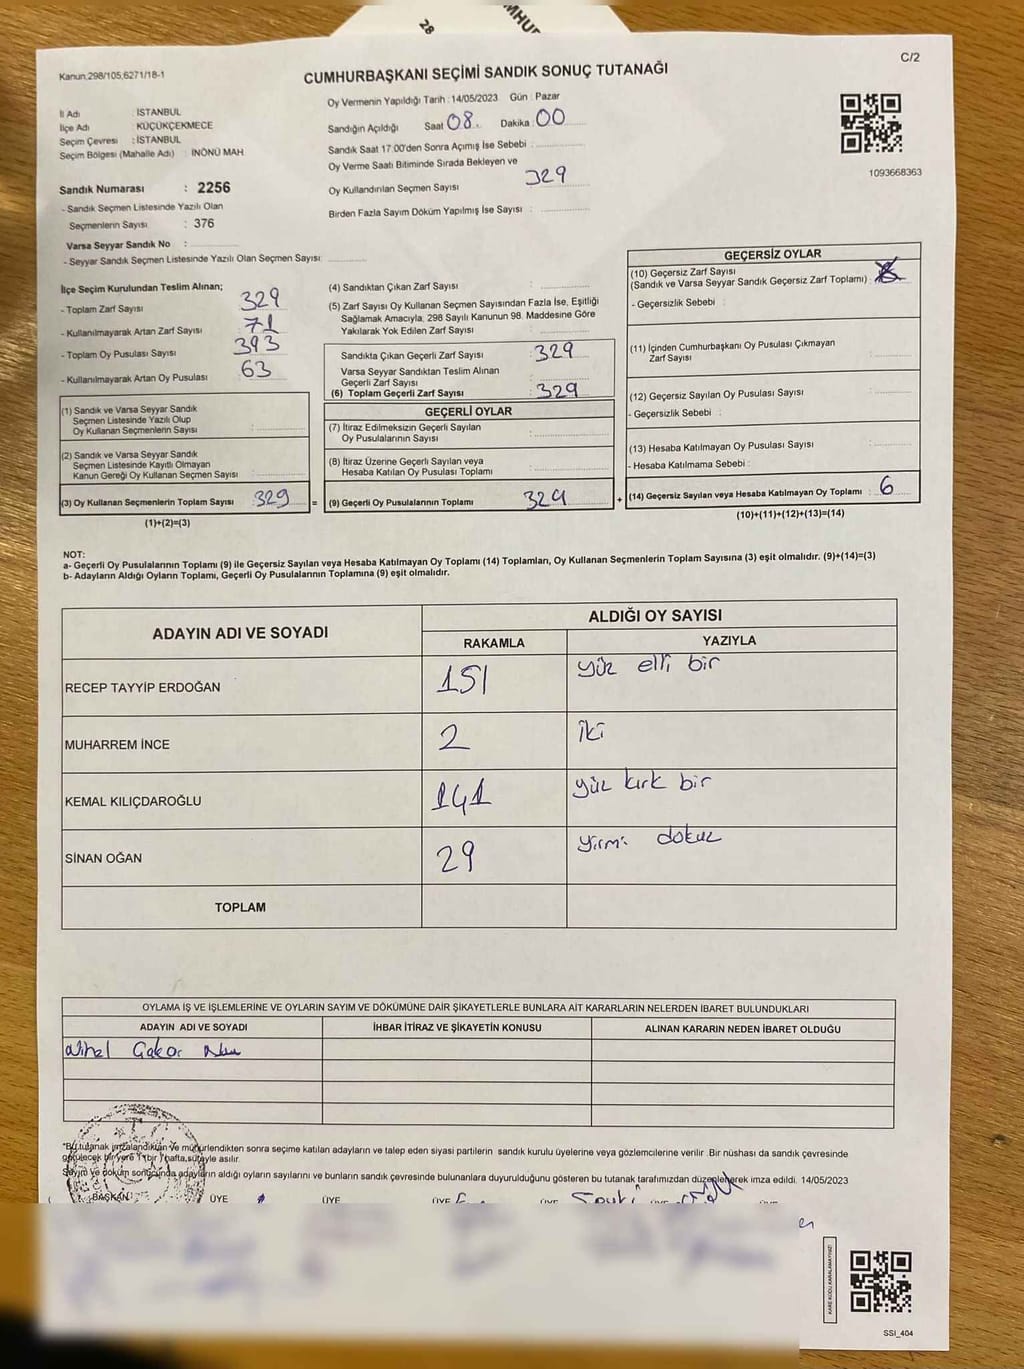 28
MHUR
C/2
Kanun,298/105;6271/18-1
CUMHURBAŞKANI SEÇİMİ SANDIK SONUÇ TUTANAĞI
İl Adı : İSTANBUL
İlçe Adı : KÜÇÜKÇEKMECE
Seçim Çevresi : İSTANBUL
Seçim Bölgesi (Mahalle Adı) : İNÖNÜ MAH
Sandık Numarası : 2256
- Sandık Seçmen Listesinde Yazılı Olan
Seçmenlerin Sayısı : 376
Varsa Seyyar Sandık No :
- Seyyar Sandık Seçmen Listesinde Yazılı Olan Seçmen Sayısı:
Oy Vermenin Yapıldığı Tarih : 14/05/2023 Gün : Pazar
Sandığın Açıldığı Saat 08. Dakika : 00
Sandık Saat 17:00'den Sonra Açımış İse Sebebi :
Oy Verme Saati Bitiminde Sırada Bekleyen ve
Oy Kullandırılan Seçmen Sayısı 329
Birden Fazla Sayım Döküm Yapılmış İse Sayısı :
1093668363
İlçe Seçim Kurulundan Teslim Alınan;
- Toplam Zarf Sayısı 329
- Kullanılmayarak Artan Zarf Sayısı 71
- Toplam Oy Pusulası Sayısı 393
- Kullanılmayarak Artan Oy Pusulası 63
(1) Sandık ve Varsa Seyyar Sandık
Seçmen Listesinde Yazılı Olup
Oy Kullanan Seçmenlerin Sayısı :
(2) Sandık ve Varsa Seyyar Sandık
Seçmen Listesinde Kayıtlı Olmayan
Kanun Gereği Oy Kullanan Seçmen Sayısı
(3) Oy Kullanan Seçmenlerin Toplam Sayısı 329 =
(1)+(2)=(3)
(4) Sandıktan Çıkan Zarf Sayısı :
(5) Zarf Sayısı Oy Kullanan Seçmen Sayısından Fazla İse, Eşitliği
Sağlamak Amacıyla, 298 Sayılı Kanunun 98. Maddesine Göre
Yakılarak Yok Edilen Zarf Sayısı :
Sandıkta Çıkan Geçerli Zarf Sayısı 329
Varsa Seyyar Sandıktan Teslim Alınan
Geçerli Zarf Sayısı
(6) Toplam Geçerli Zarf Sayısı : 329
GEÇERLİ OYLAR
(7) İtiraz Edilmeksizin Geçerli Sayılan
Oy Pusulalarının Sayısı :
(8) İtiraz Üzerine Geçerli Sayılan veya
Hesaba Katılan Oy Pusulası Toplamı :
(9) Geçerli Oy Pusulalarının Toplamı 329 +
GEÇERSİZ OYLAR
(10) Geçersiz Zarf Sayısı
(Sandık ve Varsa Seyyar Sandık Geçersiz Zarf Toplamı) :
- Geçersizlik Sebebi :
(11) İçinden Cumhurbaşkanı Oy Pusulası Çıkmayan
Zarf Sayısı :
(12) Geçersiz Sayılan Oy Pusulası Sayısı :
- Geçersizlik Sebebi :
(13) Hesaba Katılmayan Oy Pusulası Sayısı :
- Hesaba Katılmama Sebebi :
(14) Geçersiz Sayılan veya Hesaba Katılmayan Oy Toplamı : 6
(10)+(11)+(12)+(13)=(14)
NOT:
a- Geçerli Oy Pusulalarının Toplamı (9) ile Geçersiz Sayılan veya Hesaba Katılmayan Oy Toplamı (14) Toplamları, Oy Kullanan Seçmenlerin Toplam Sayısına (3) eşit olmalıdır. (9)+(14)=(3)
b- Adayların Aldığı Oyların Toplamı, Geçerli Oy Pusulalarının Toplamına (9) eşit olmalıdır.
ADAYIN ADI VE SOYADI
ALDIĞI OY SAYISI
RAKAMLA YAZIYLA
RECEP TAYYİP ERDOĞAN 151 yüz elli bir
MUHARREM İNCE 2 iki
KEMAL KILIÇDAROĞLU 141 yüz kırk bir
SİNAN OĞAN 29 yirmi dokuz
TOPLAM
OYLAMA İŞ VE İŞLEMLERİNE VE OYLARIN SAYIM VE DÖKÜMÜNE DAİR ŞİKAYETLERLE BUNLARA AİT KARARLARIN NELERDEN İBARET BULUNDUKLARI
ADAYIN ADI VE SOYADI İHBAR İTİRAZ VE ŞİKAYETİN KONUSU ALINAN KARARIN NEDEN İBARET OLDUĞU
*Bu tutanak imzalandıktan ve mühürlendikten sonra seçime katılan adayların ve talep eden siyasi partilerin sandık kurulu üyelerine veya gözlemcilerine verilir. Bir nüshası da sandık çevresinde
görülecek bir yere 1 bir hafta süreyle asılır.
Sayım ve döküm sonucunda adayların aldığı oyların sayılarını ve bunların sandık çevresinde bulunanlara duyurulduğunu gösteren bu tutanak tarafımızdan düzenlenerek imza edildi. 14/05/2023
BAŞKAN ÜYE ÜYE ÜYE
KARE KODU KARALAMAYINIZ!
SSI_404